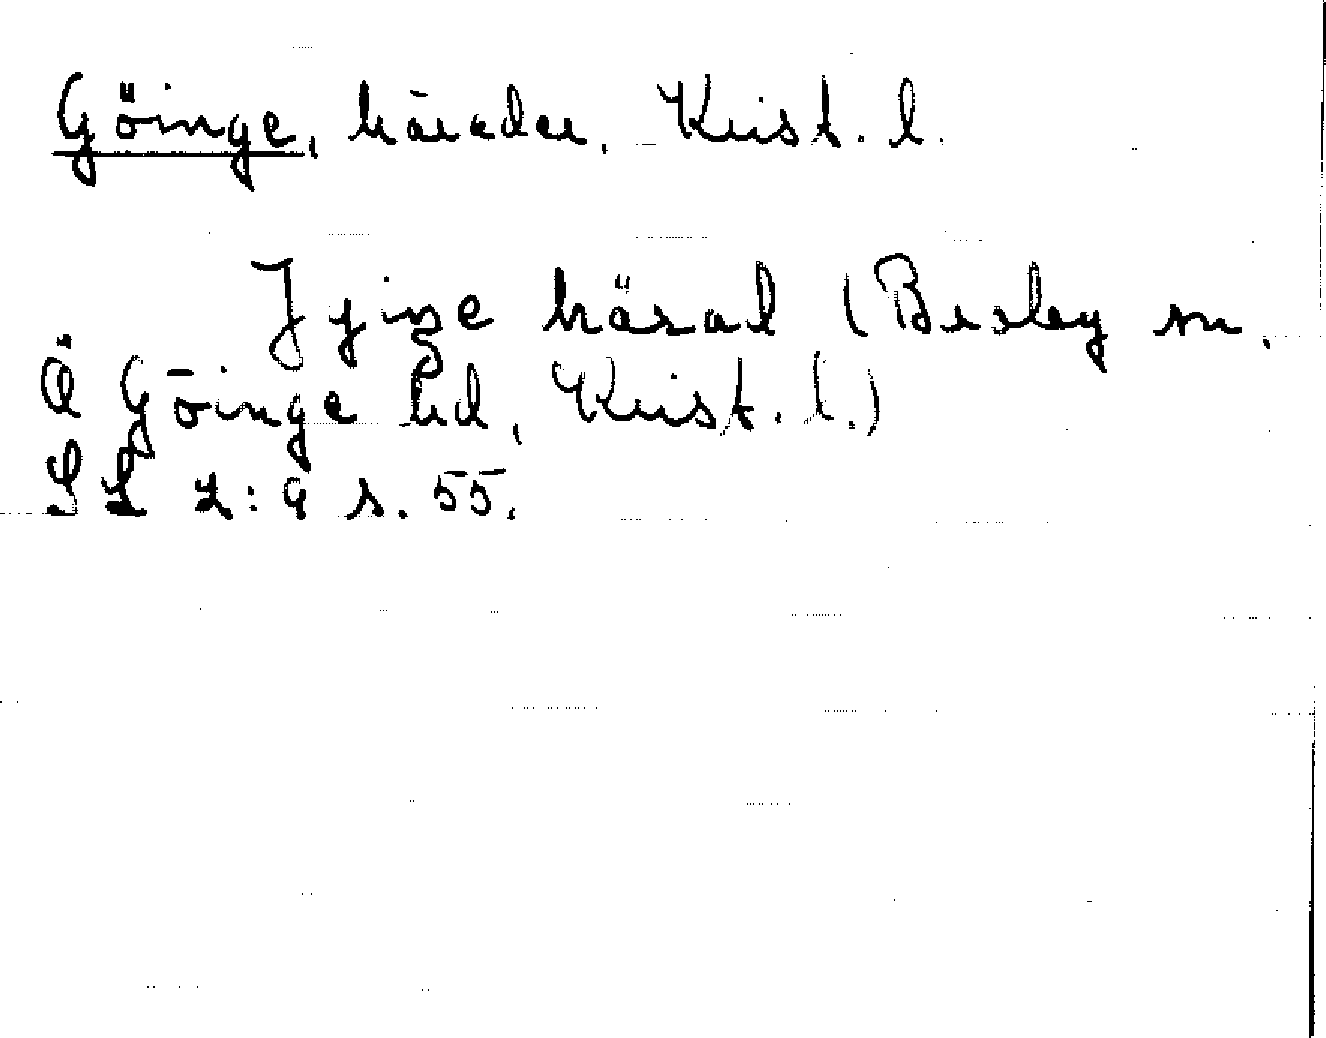 Göinge, härader, Krist. l.
Jyinge häral (Bosley sn,
Ö Göinge hd, Krist. l.)
SL 2:9 s. 55.